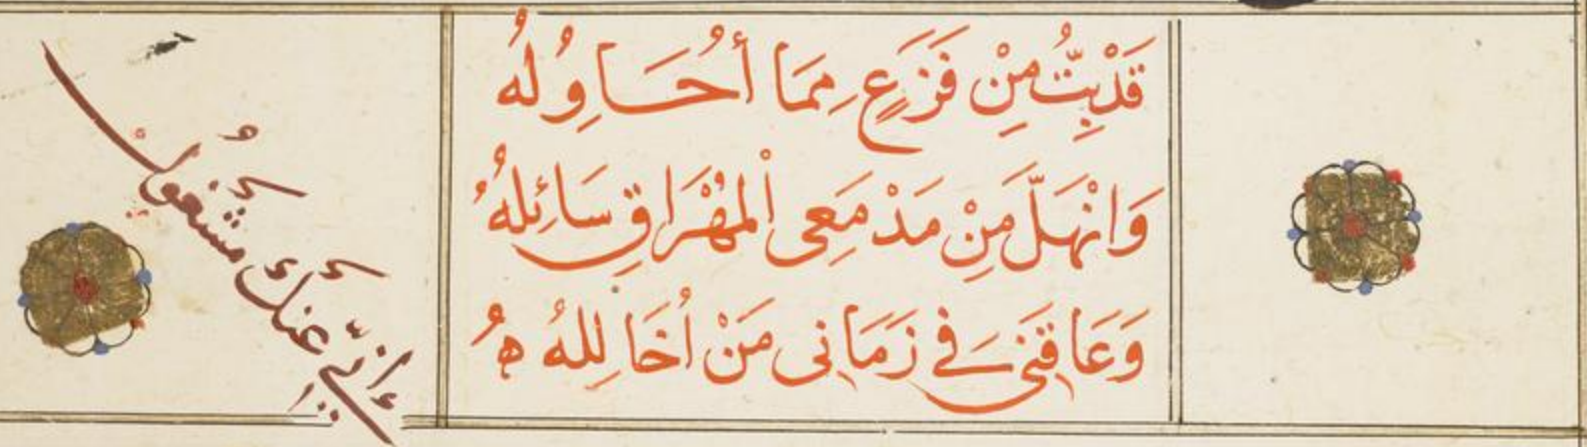 قَدْبِتُّ مِنْ فَزَعٍ مِمَا أُحَاوِلُهُ
وَانْهَلَّ مِنْ مَدْمَعِى اْلمُهْرَاقِ سَائِلُهُ
وَعَاقَنِى فِى زَمَانِى مَنْ أُخَالِلُهُ
إنِّى عنك مشغول